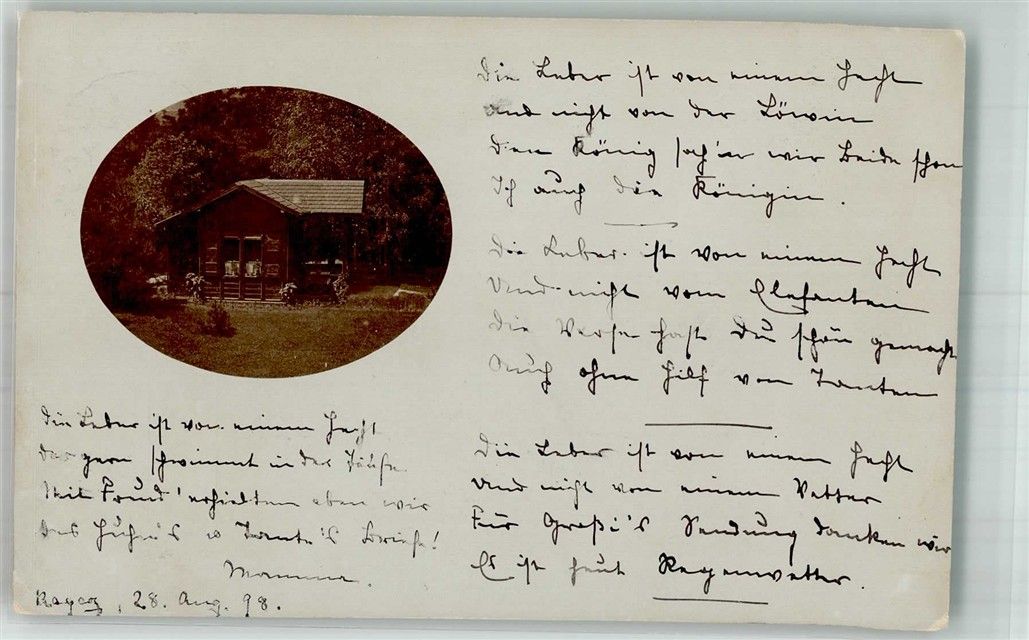 Die Leber ist von einem Hecht
und nicht von der Löwin
Den König sah'n wir Beide schon
Ich auch die Königin.
Die Leber ist von einem Hecht
Und nicht vom Elefanten
Die Verse hast Du schön gemacht
Auch ohne Hilf von Tanten
Die Leber ist von einem Hecht
und nicht von einem Vetter
Für Großi's Sendung danken wir
Es ist heut Regenwetter.
Die Leber ist von einem Hecht
Der gern schwimmt in der
Mit Freud' erhielten eben wir
Des u Tante's Briefe!
Mamma.
28. Aug. 98.